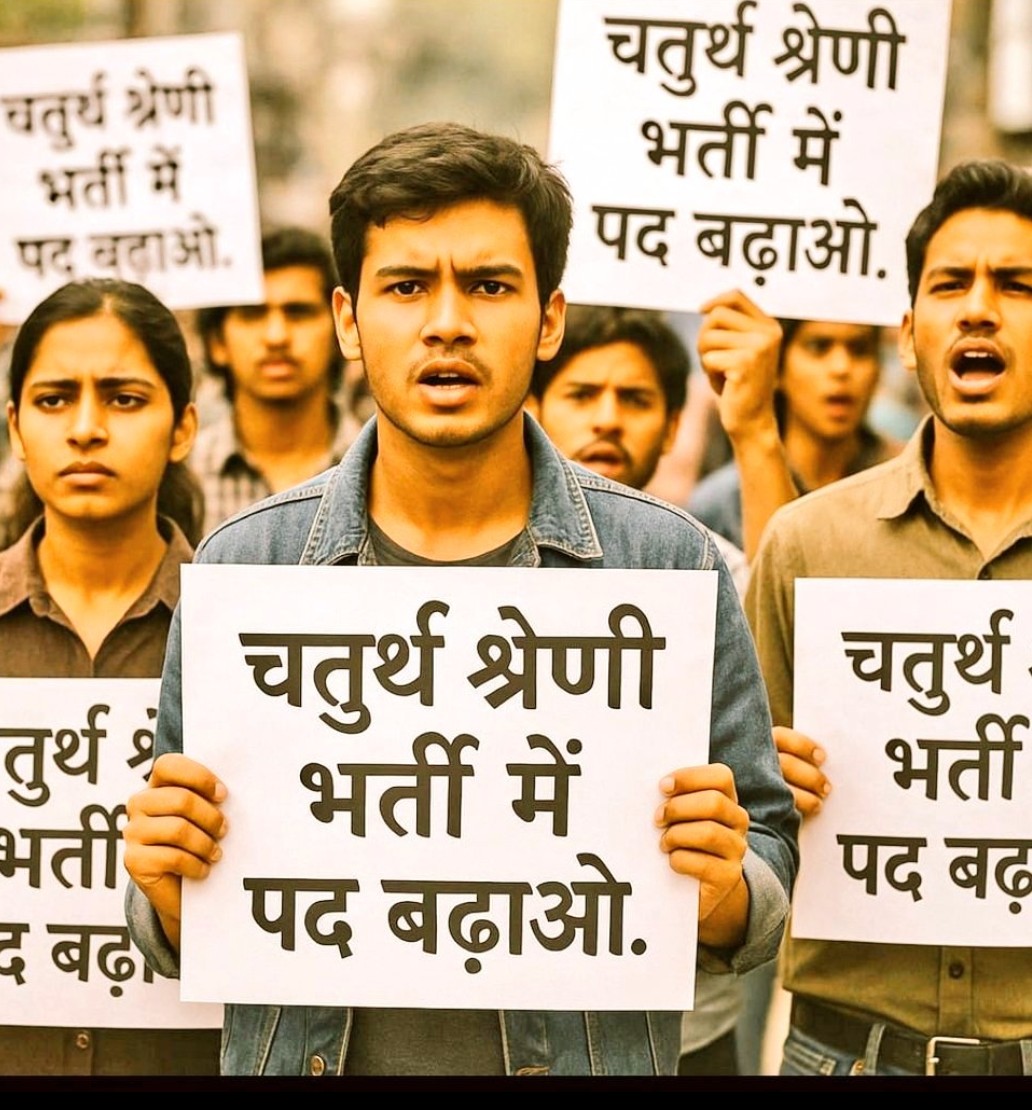 चतुर्थ श्रेणी
भर्ती में
पद बढ़ाओ.
चतुर्थ श्रेणी
भर्ती में
पद बढ़ाओ.
चतुर्थ श्रेणी
भर्ती में
पद बढ़ाओ.
भर्ती
चतुर्थ
भर्ती
पद